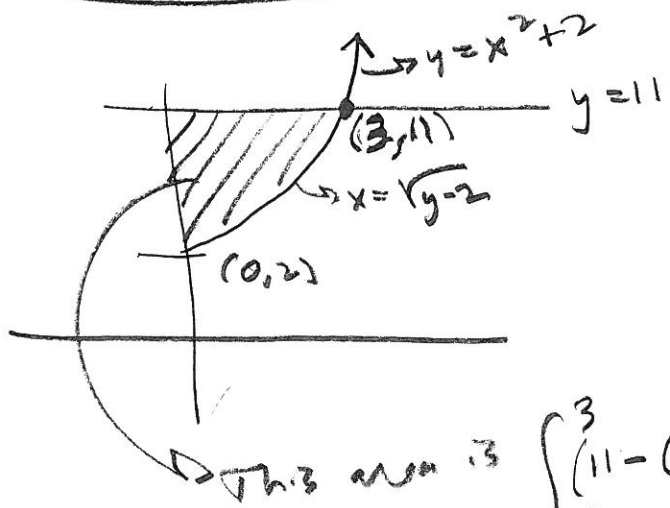 y = x² + 2
y = 11
(3, 11)
x = √y-2
(0, 2)
This area is ∫³ (11 - (